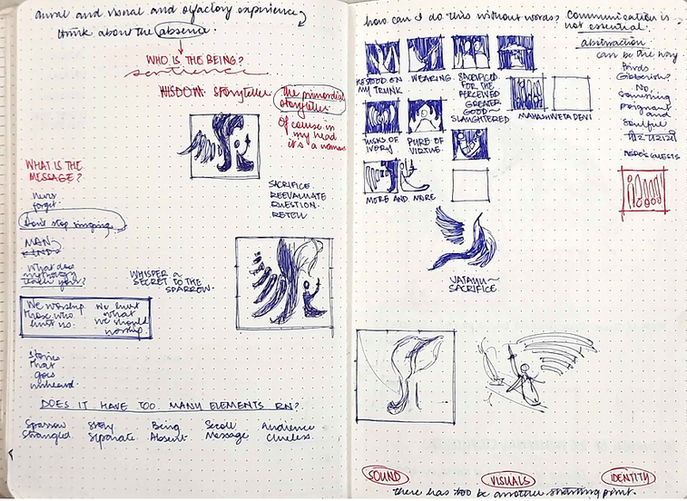 aural and visual and olfactory experience
think about the absence
WHO IS THE BEING?
sentence
WISDOM: storyteller
the primordial
storyteller.
Of course in
my head
it's a woman
WHAT IS THE
MESSAGE?
never
forget.
Don't stop singing.
MAN
KINDS
What does
mythology
teach you?
We worship
those who
hurt us.
We hurt
what
we should
worship
SACRIFICE
REEVALUATE
QUESTION
RETELL
WHISPER a
SECRET TO THE
SPARROW.
stories
that
goes
unheard
DOES IT HAVE TOO MANY ELEMENTS RN?
Sparrow Story Being Scroll Audience
Strangled Separate Absent Message Clueless.
how can I do this without words? Communication is
not essential.
abstraction
can be the way
Birds
Gibberish?
No,
something
poignant
and
soulful
NERO'S GUESTS
ON
MY TRUNK
WEARING
SACRIFICED
FOR THE
PERCEIVED
GREATER
GOOD~
SLAUGHTERED
MAHASHWETA DEVI
TUSKS OF
IVORY
PURE OF
VIRTUE
MORE AND MORE
JATAYU~
SACRIFICE
SOUND
VISUALS
IDENTITY
there has too be another starting point.